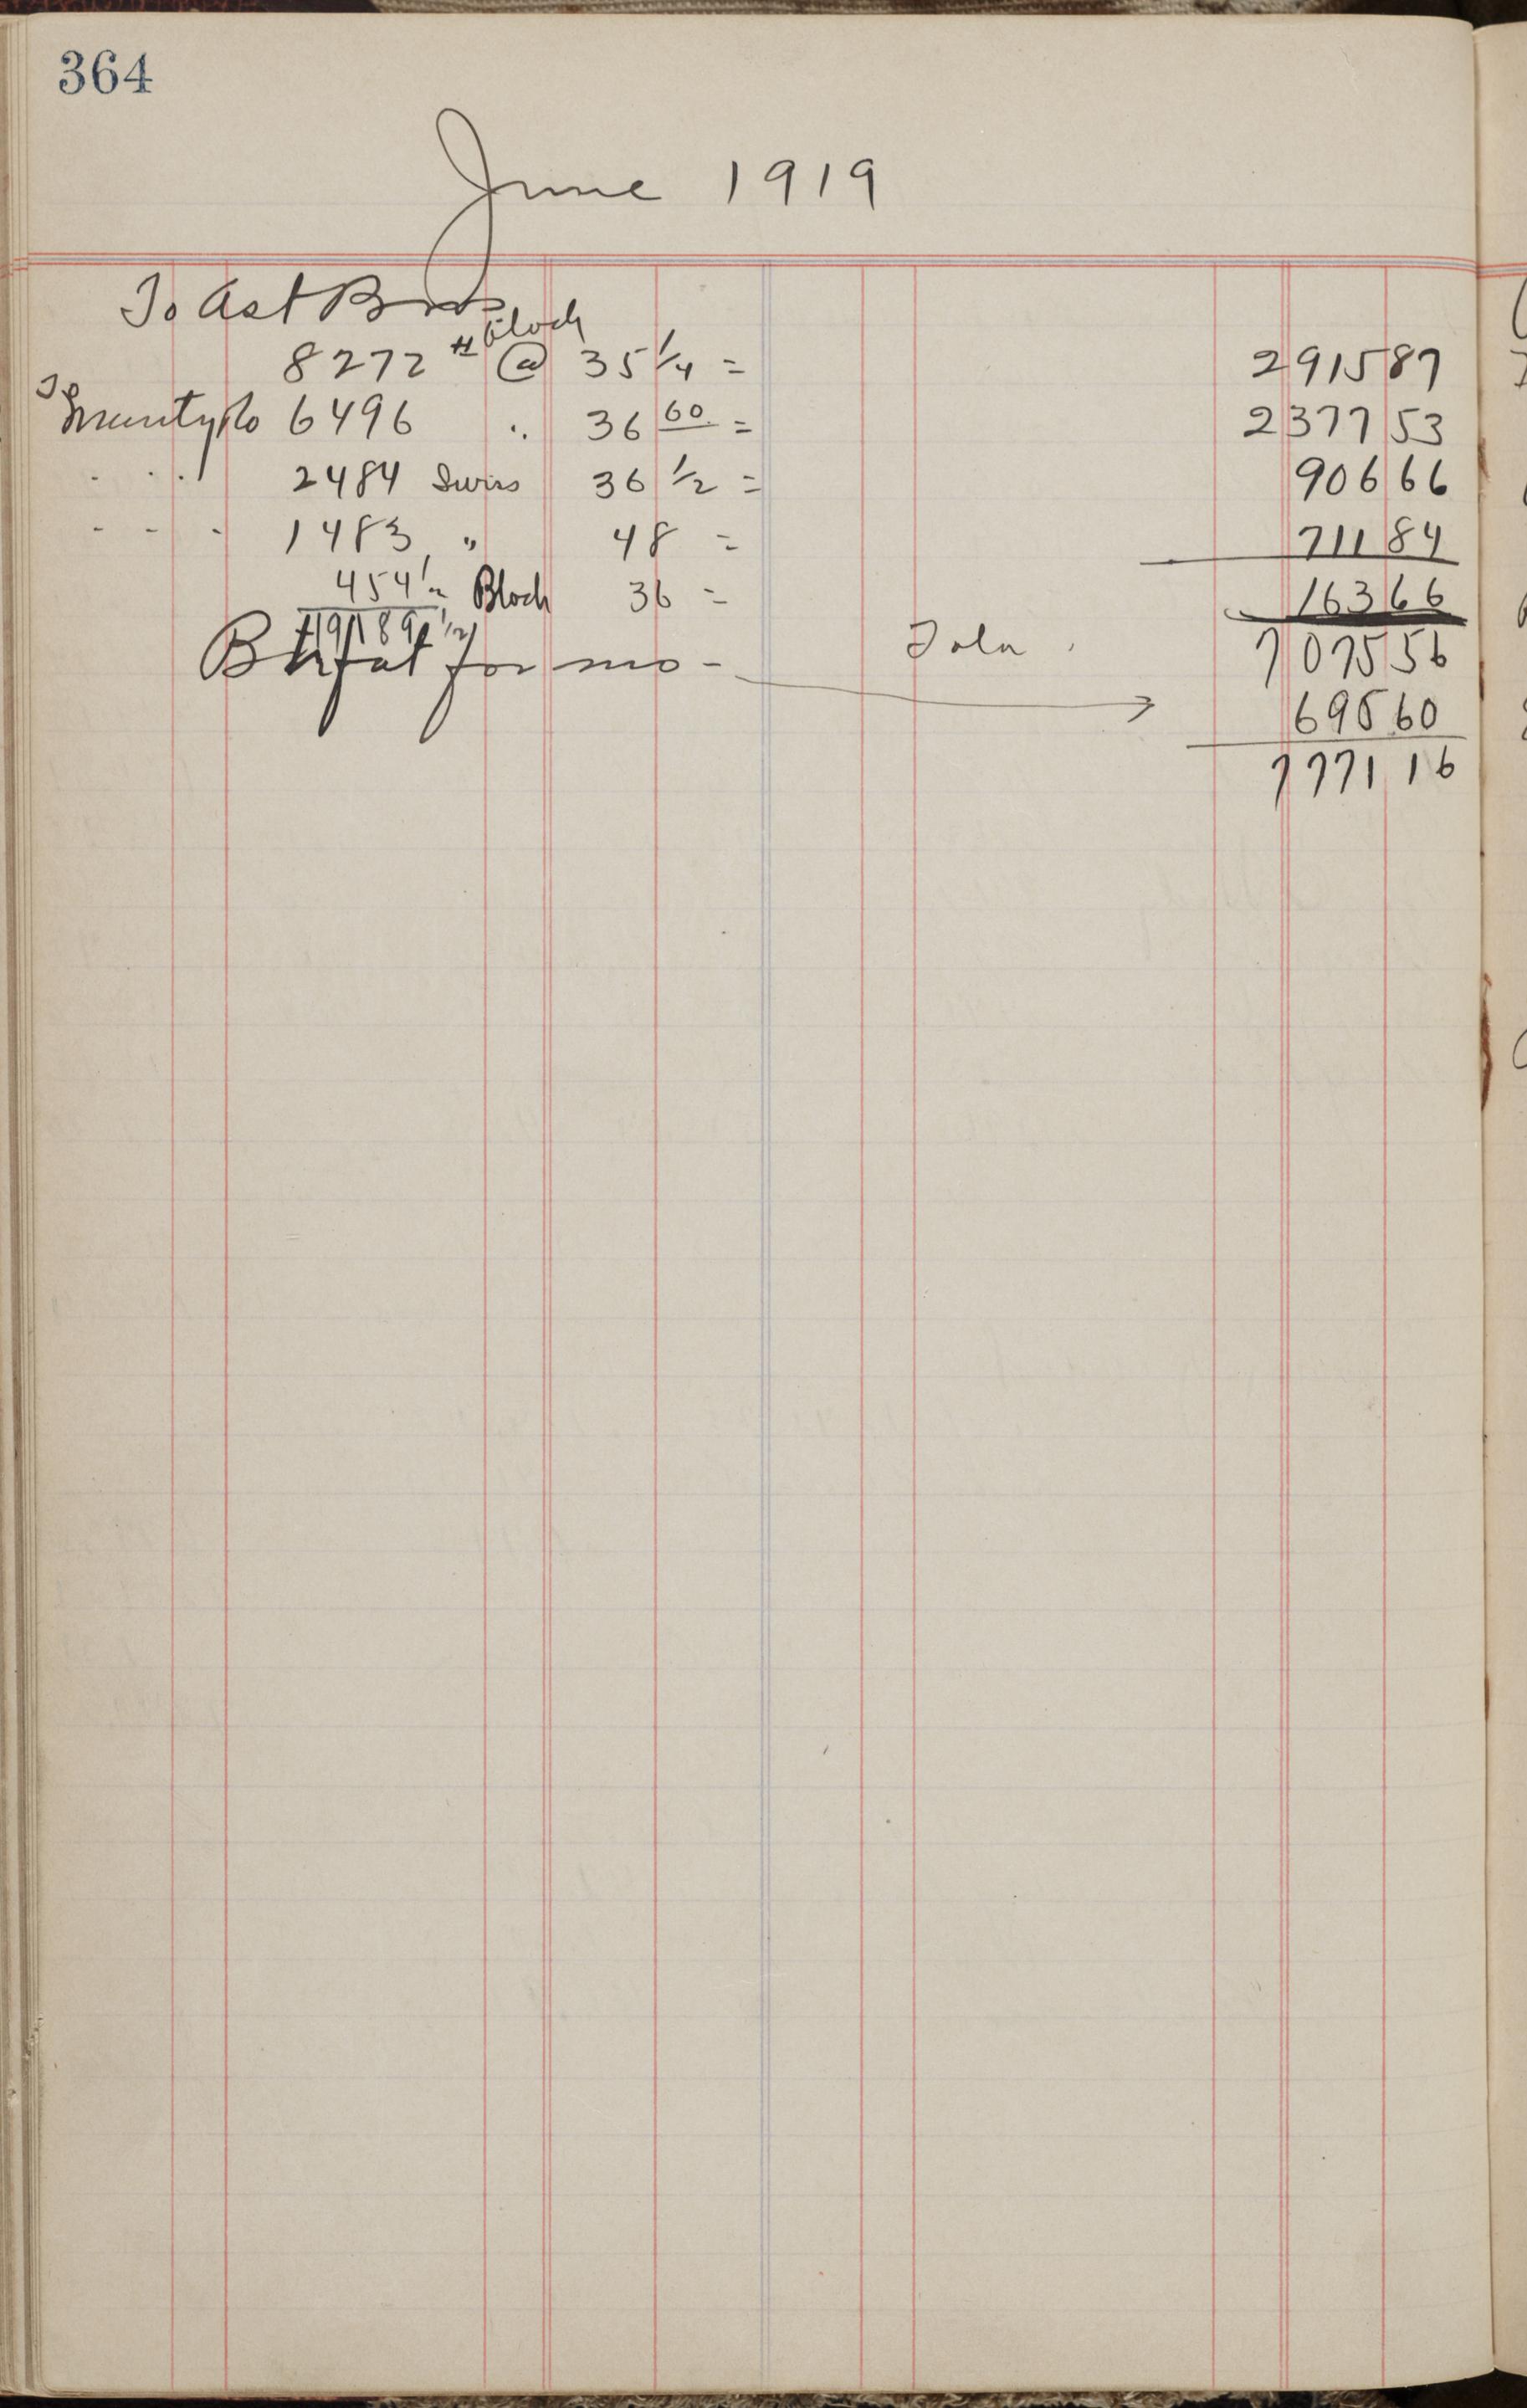 364
June 1919
To Ast Bros
8272 # Block @ 35 1/4 = 2915 87
6496 " 36 60 = 2377 53
" " 2484 Swiss 36 1/2 = 906 66
" " " 1483 " 48 = 711 84
454 1/2 Block 36 = 163 66
19189 1/2
B fat for mo - Total 7075 56
695 60
7771 16